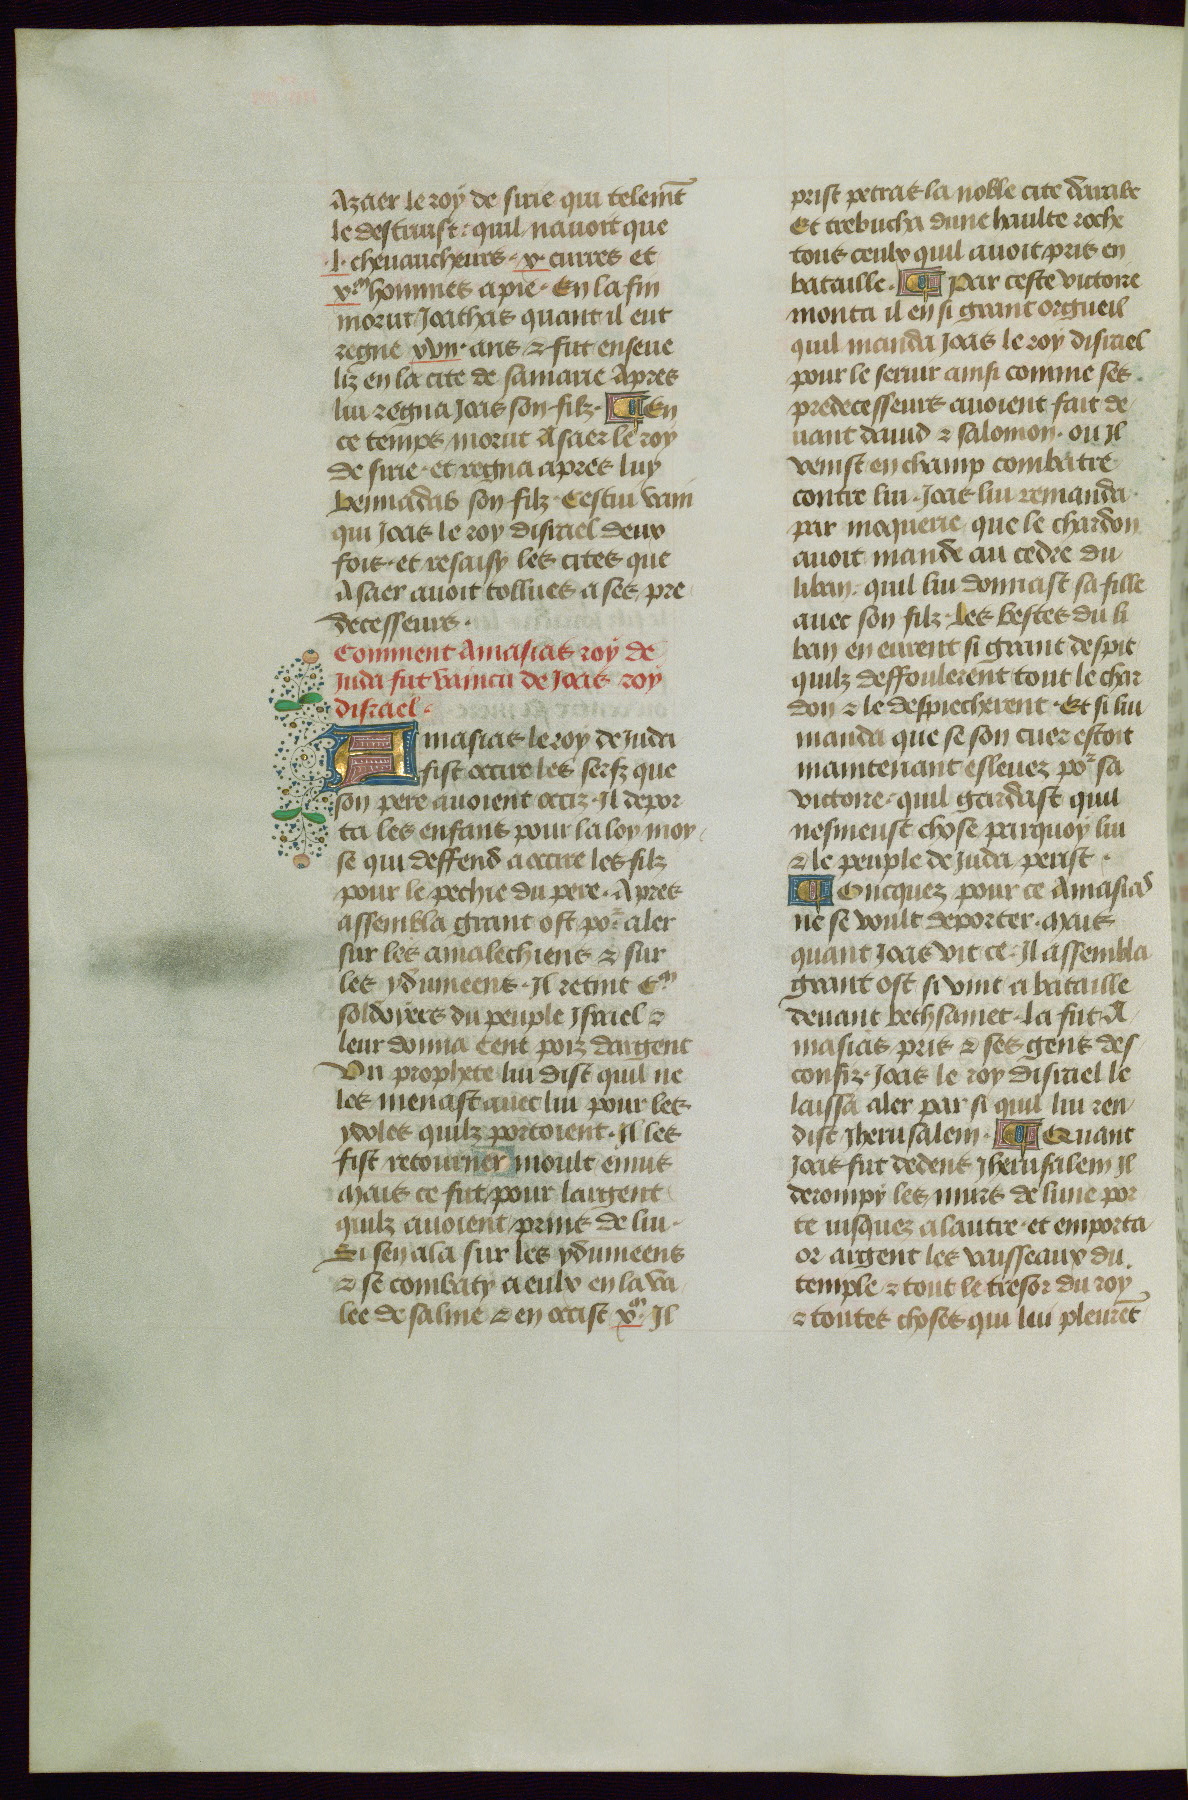 Azaer le roy de sirie qui telemt̄
le destruist: quil nauoit que
.l. cheuaucheurs. x. curres et
x.m hommes a pie. En la fin
morut Joathas quant il eut
regne xvii. ans ⁊ fut enseue
liz en la cite de samarie Apres
lui regna Joas son filz. En
ce temps morut Asaer le roy
de sirie. et regna apres luy
bennadas son filz. Cestui vain
qui Joas le roy disrael deux
fois. et resaisy les cites que
Asaer auoit tollues a ses pre
decesseurs.
Comment Amasias roy de
Juda fut vaincu de Joas roy
disrael.
Amasias le roy de Juda
fist occire les serfz que
son pere auoient occiz. Il depor
ta les enfans pour la loy moy
se qui deffend a occire les filz
pour le pechie du pere. Apres
assembla grant ost por aler
sur les amalechiens ⁊ sur
les ydumeens. Il retint Cm
soldoyers du peuple Israel ⁊
leur donna cent poiz dargent
Vn prophete lui dist quil ne
les menast auec lui pour les
ydoles quilz portoient. Il les
fist retourner moult enuis
Mais ce fut pour largent
quilz auoient prins de lui.
Si sen ala sur les ydumeens
⁊ se combaty a eulx en la va
lee de saline ⁊ en occist x.m Il
prist petras la noble cite darabe
Et trebucha dune haulte roche
tous ceulx quil auoit pris en
bataille. Par ceste victoire
monta il en si grant orgueil
quil manda Joas le roy disrael
pour le seruir ainsi comme ses
predecesseurs auoient fait de
uant dauid ⁊ salomon. ou Il
venist en champ combatre
contre lui. Joas lui remanda
par moquerie que le chardon
auoit mande au cedre du
liban. quil lui donnast sa fille
auec son filz. Les bestes du li
ban en eurent si grant despit
quilz deffoulerent tout le char
don ⁊ le despiecherent. Et si lui
manda que se son cuer estoit
maintenant esleuez por sa
victoire. quil gardast quil
nesmeust chose parquoy lui
⁊ le peuple de Juda perist.
Oncquez pour ce Amasias
ne se voult deporter. Mais
quant Joas vit ce. Il assembla
grant ost si vint a bataille
deuant bethsames. La fut A
masias pris ⁊ ses gens des
confiz. Joas le roy disrael le
laissa aler par si quil lui ren
dist Jherusalem. Quant
Joas fut dedens Jherusalem Il
derompy les murs de lune por
te iusquez a lautre. et emporta
or argent les vaisseaux du
temple ⁊ tout le tresor du roy
⁊ toutes choses qui lui pleurēt